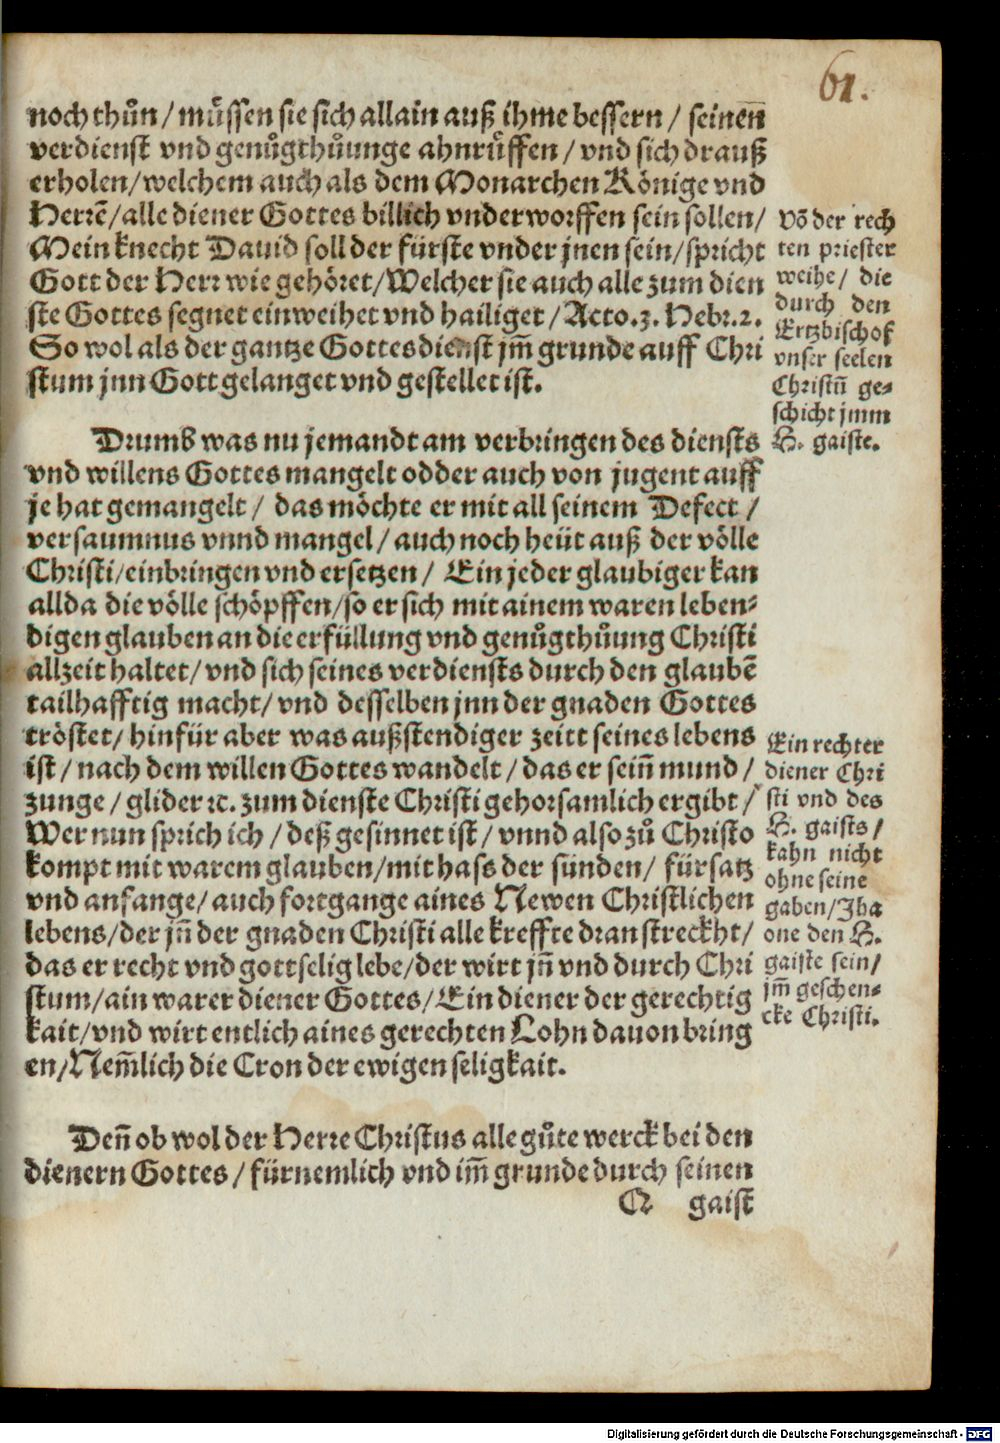 61.
noch thuͦn / muͤssen sie sich allain auß ihme bessern / seinen̄
verdienst vnd genuͦgthuͦunge ahnruͤffen / vnd sich drauß
erholen / welchem auch als dem Monarchen Könige vnd
Herrẽ / alle diener Gottes billich vnderworffen sein sollen /
Mein knecht Dauid soll der fürste vnder jnen sein / spricht
Gott der Herr wie gehöret / Welcher sie auch alle zum dien
ste Gottes segnet einweihet vnd hailiget / Acto. 3. Hebr. 2.
So wol als der gantze Gottesdienst jm̄ grunde auff Chri
stum jnn Gott gelanget vnd gestellet ist.
Võ der rech
ten priester
weihe / die
durch den
Ertzbischof
vnser seelen
Christū ge⸗
schicht jmm
H. gaiste.
Drumb was nu jemandt am verbringen des diensts
vnd willens Gottes mangelt odder auch von jugent auff
je hat gemangelt / das möchte er mit all seinem Defect /
versaumnus vnnd mangel / auch noch heüt auß der völle
Christi / einbringen vnd ersetzen / Ein jeder glaubiger kan
allda die völle schöpffen / so er sich mit ainem waren leben⸗
digen glauben an die erfüllung vnd genuͦgthuͦung Christi
allzeit haltet / vnd sich seines verdiensts durch den glaubẽ
tailhafftig macht / vnd desselben jnn der gnaden Gottes
tröstet / hinfür aber was außstendiger zeitt seines lebens
ist / nach dem willen Gottes wandelt / das er sein̄ mund /
zunge / glider ꝛc. zum dienste Christi gehorsamlich ergibt /
Wer nun sprich ich / deß gesinnet ist / vnnd also zuͦ Christo
kompt mit warem glauben / mit hass der sünden / fürsatz
vnd anfange / auch fortgange aines Newen Christlichen
lebens / der jn̄ der gnaden Christi alle kreffte dran streckht /
das er recht vnd gottselig lebe / der wirt jn̄ vnd durch Chri
stum / ain warer diener Gottes / Ein diener der gerechtig
kait / vnd wirt entlich aines gerechten Lohn dauon bring
en / Nem̄lich die Cron der ewigen seligkait.
Ein rechter
diener Chri
sti vnd des
H. gaists /
kahn nicht
ohne seine
gaben / Jha
one den H.
gaiste sein /
jm̄ geschen⸗
cke Christi.
Den̄ ob wol der Herre Christus alle guͦte werck bei den
dienern Gottes / fürnemlich vnd im̄ grunde durch seinen
Q gaist
Digitalisierung gefördert durch die Deutsche Forschungsgemeinschaft - DFG